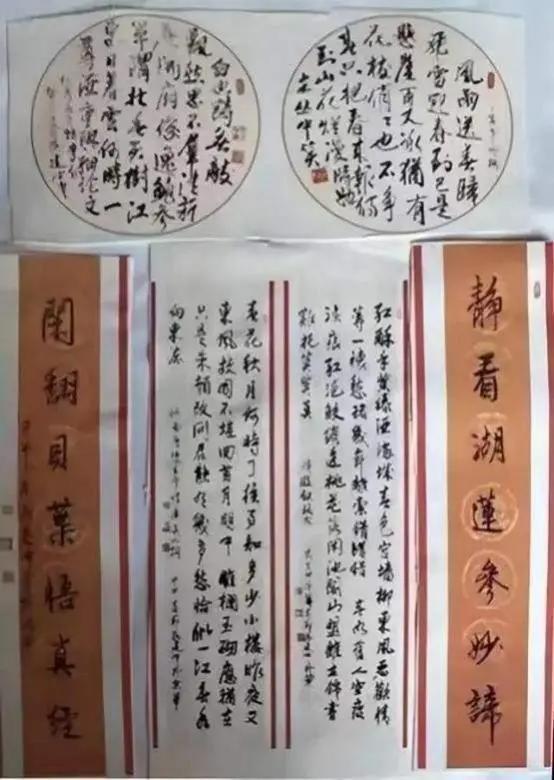 風雨送春歸
飛雪迎春到已是
懸崖百丈冰猶有
花枝俏俏也不爭
春只把春來報待
到山花爛漫時她
在丛中笑
白也詩無敵
飄然思不羣清新
庾開府俊逸鮑參
軍渭北春天樹江
東日暮雲何時一
尊酒重與細論文
靜看湖蓮參妙諦
紅酥手黃縢酒滿城春色宮牆柳東風惡歡情
薄一懷愁緒幾年離索錯錯錯 春如舊人空瘦
淚痕紅浥鮫綃透桃花落閑池閣山盟雖在錦書
難托莫莫莫
春花秋月何時了往事知多少小樓昨夜又
東風故國不堪回首月明中 雕欄玉砌應猶在
只是朱顏改問君能有幾多愁恰似一江春水
向東流
閑翻貝葉悟真經